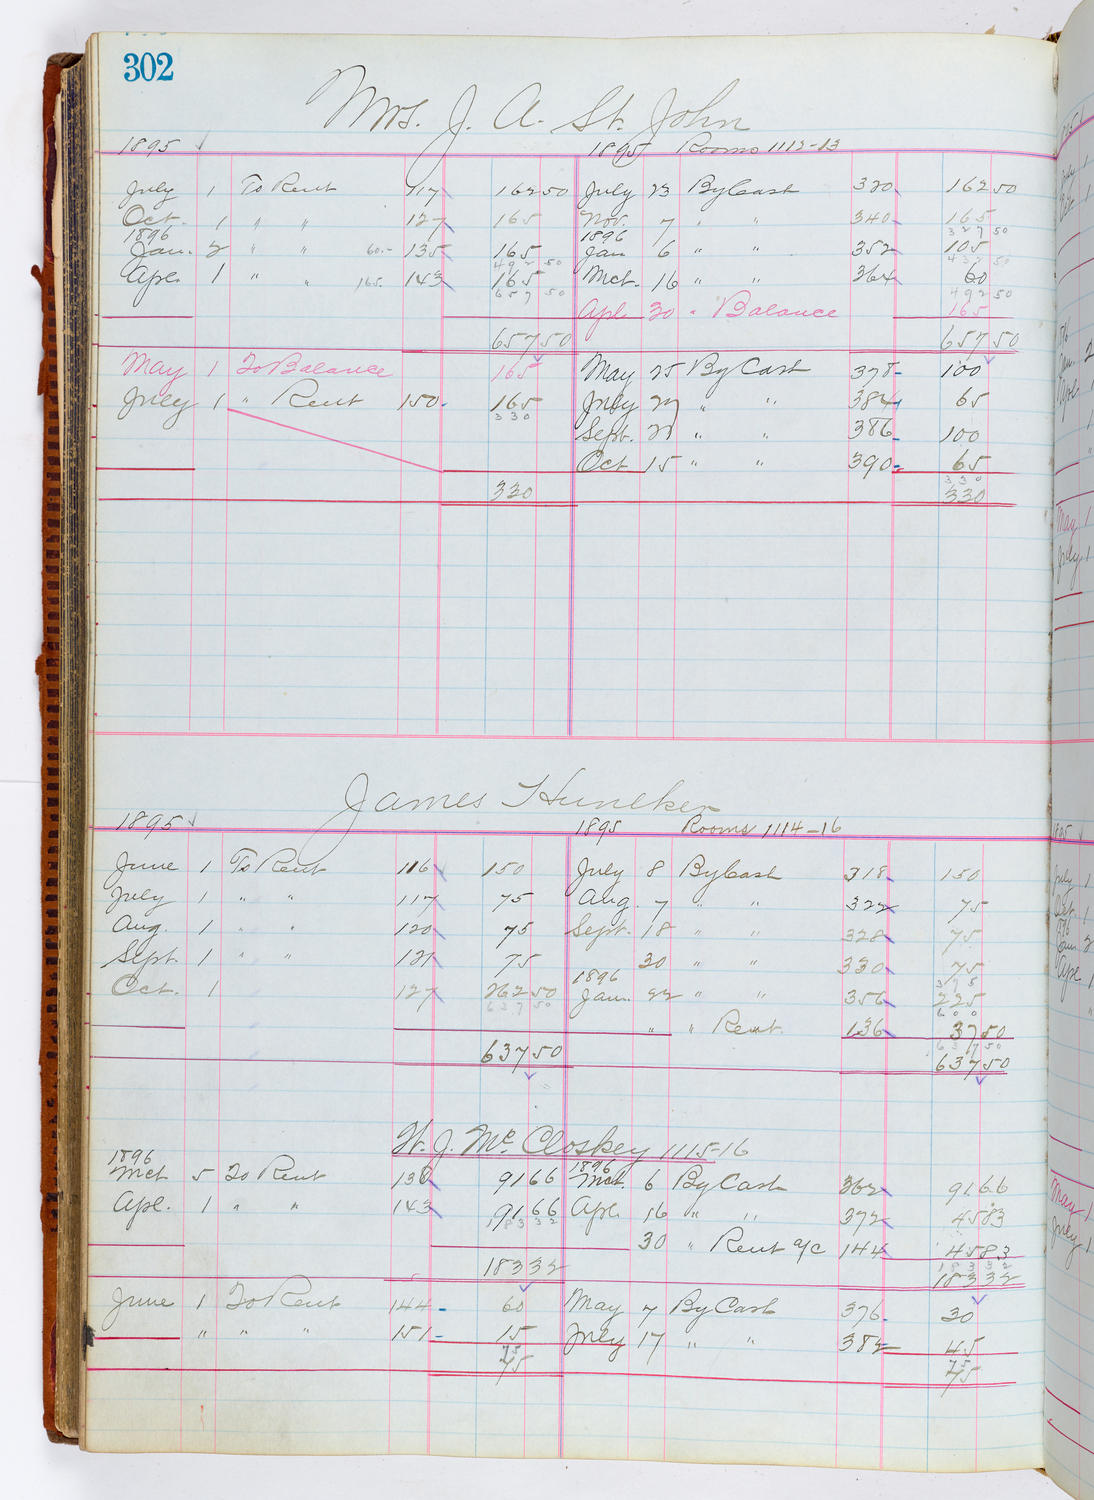 302
Mrs. J. A. St. John
1895 1895 Rooms 1112-13
July 1 To Rent 117 162 50 July 23 By Cash 320 162 50
Oct. 1 " " 127 165 Nov. 7 " " 340 165
327 50
1896 1896
Jan. 2 " " 60.- 135 165 Jan 6 " " 352 105
492 50 432 50
Apl. 1 " " 165. 143 165 Mct. 16 " " 364 60
657 50 492 50
Apl 30 " Balance 165
657 50 657 50
May 1 To Balance 165 May 25 By Cash 378 100
July 1 " Rent 150 165 July 27 " " 384 65
330
Sept. 21 " " 386 100
Oct 15 " " 390 65
330
330 330
James Huneker
1895 1895 Rooms 1114-16
June 1 To Rent 116 150 July 8 By Cash 318 150
July 1 " " 117 75 Aug. 7 " " 322 75
Aug. 1 " " 120 75 Sept. 18 " " 328 75
Sept. 1 " " 121 75 30 " " 330 75
375
1896
Oct. 1 127 262 50 Jan. 22 " " 356 225
637 50 600
" " Rent 136 37 50
637 50
637 50 637 50
W. J. McCloskey 1115-16
1896 1896
Mct 5 To Rent 138 91 66 Mct. 6 By Cash 362 91 66
Apl. 1 " " 143 91 66 Apl. 16 " " 372 45 83
183 32
30 " Rent a/c 144 45 83
183 32
183 32 183 32
June 1 To Rent 144 60 May 7 By Cash 376 30
" " " 151 15 July 17 " " 382 45
75 75
75 75